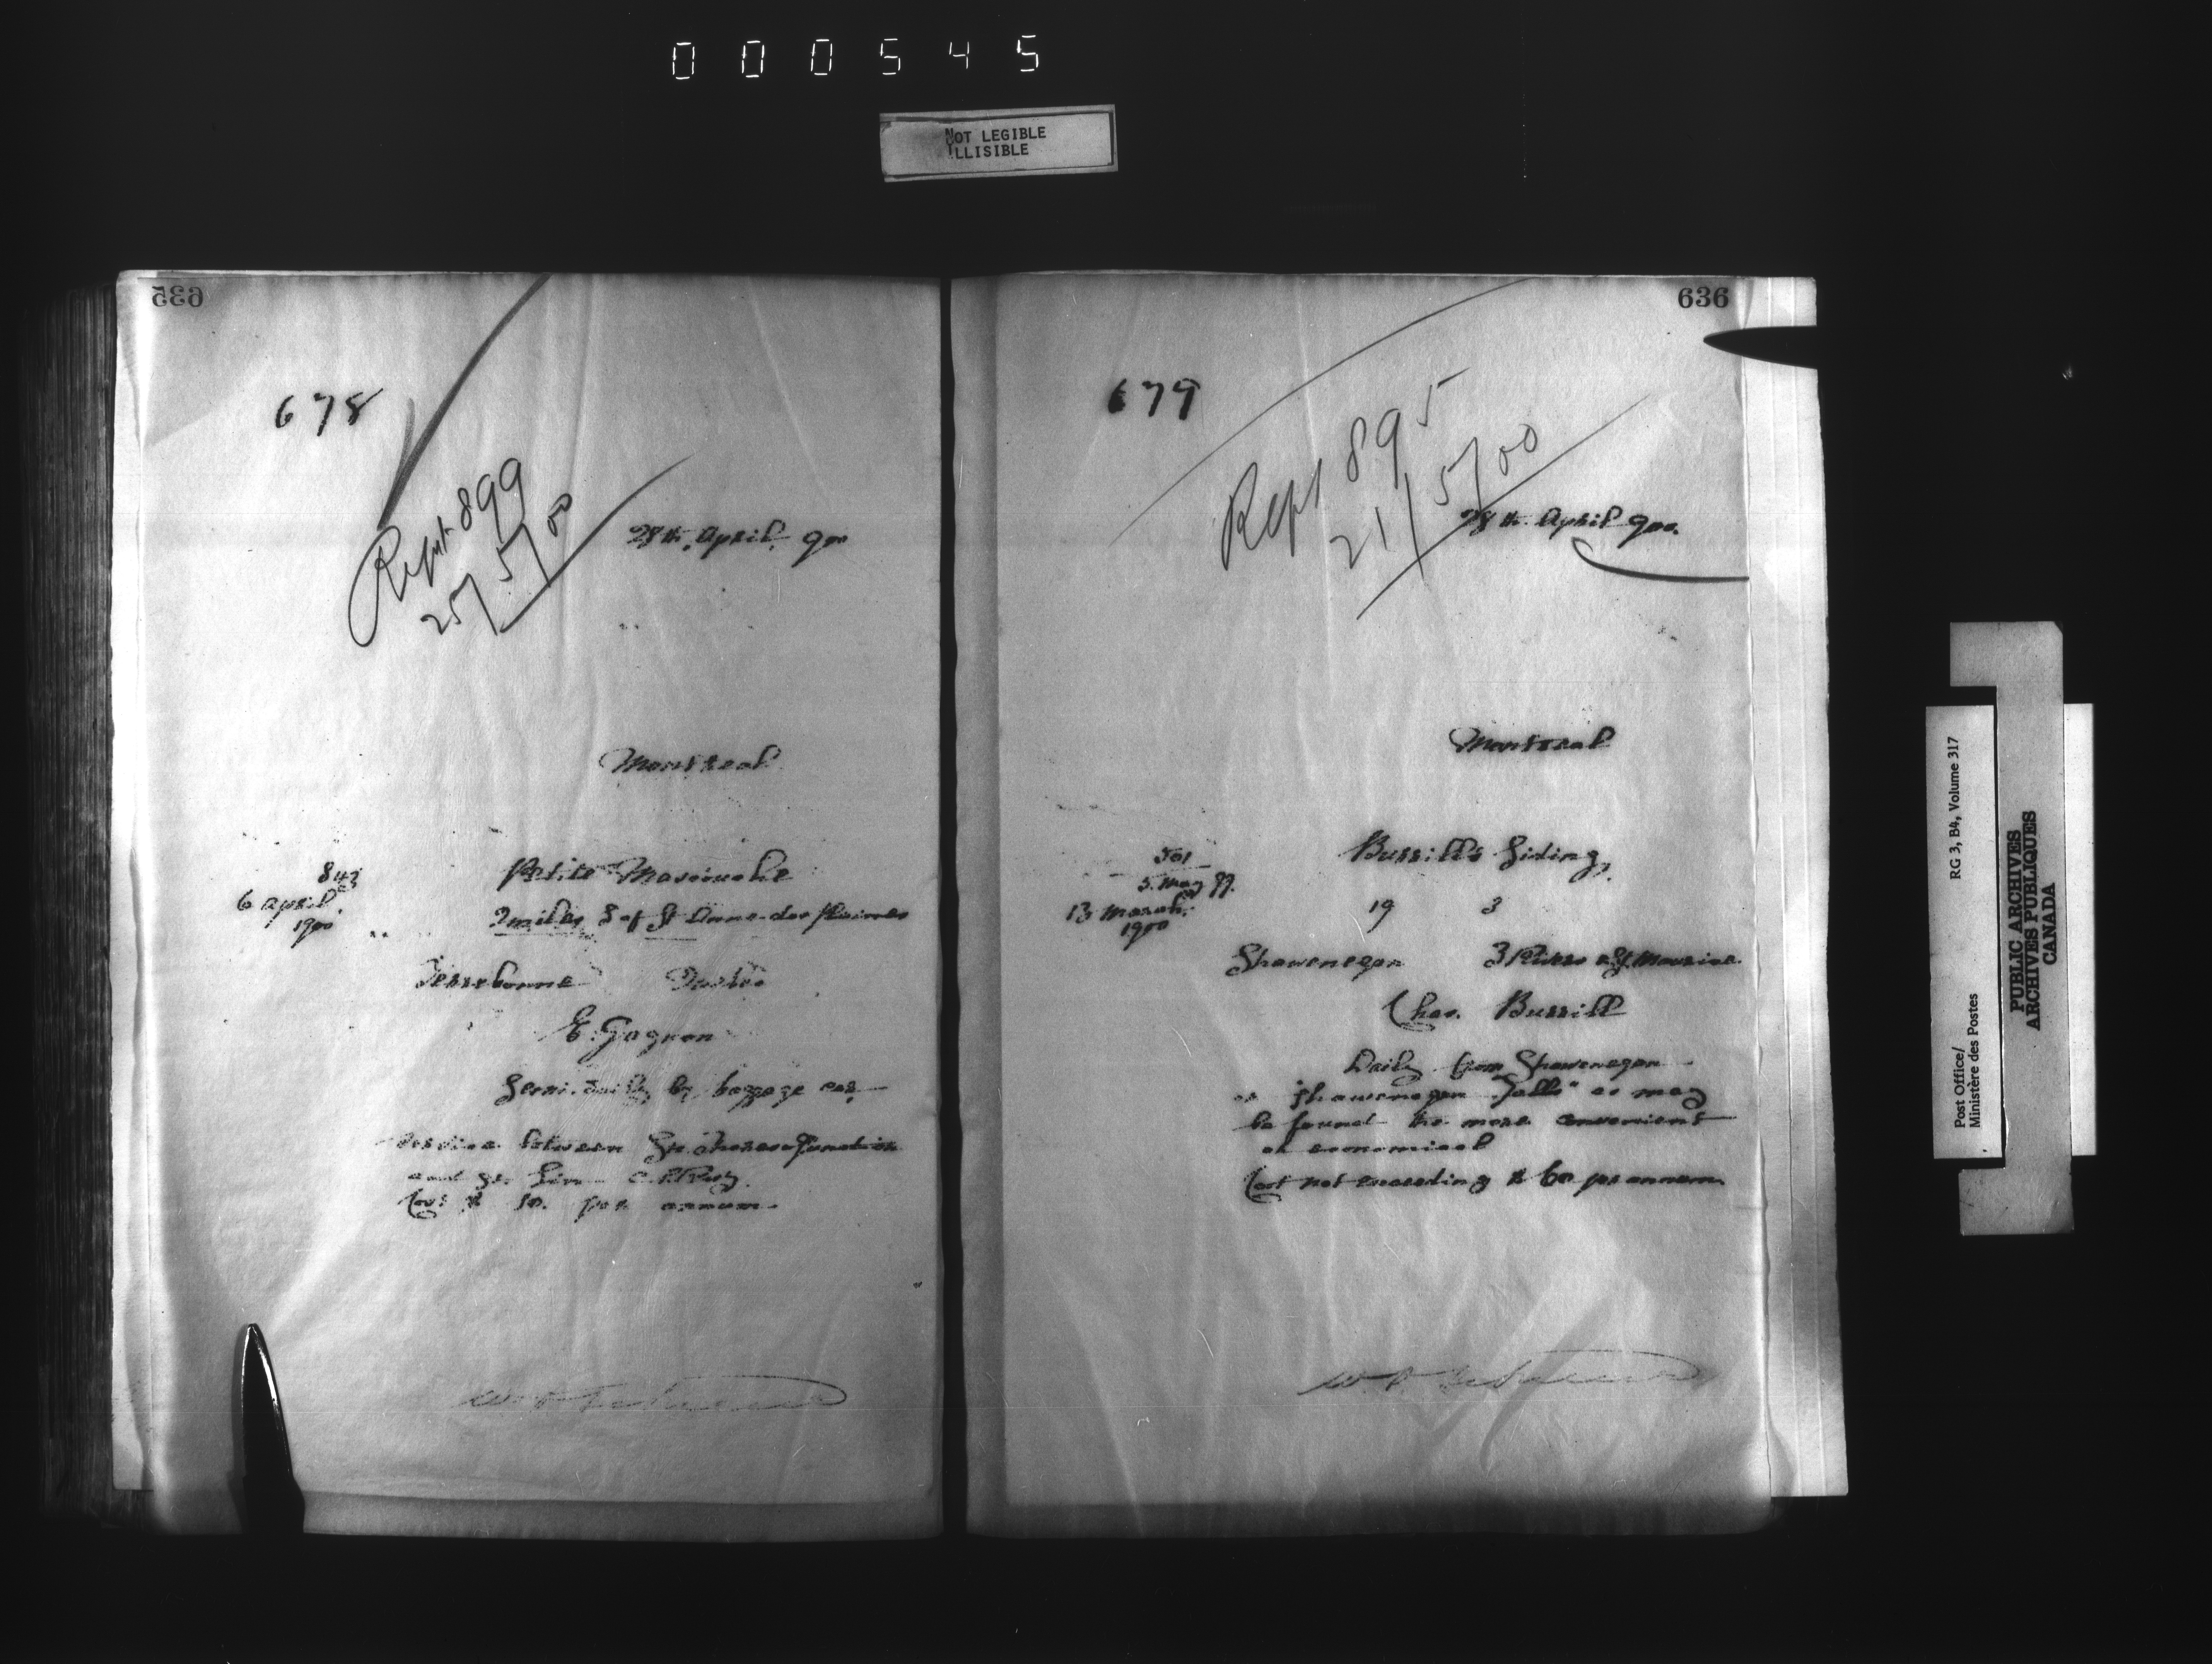 000545
NOT LEGIBLE
ILLISIBLE
635
678
Rept 899
25/5/00
28th April 900
Montreal
843
6 April
1900
Petite Mascouche
2 miles S of St Anne des Plaines
Terrebonne
E. Gagnon
Semi-daily by baggage car
service between Ste Therese Junction
and St. Lin C.P.Ry.
Cost $ 50. per annum
636
679
Rept 895
21/5/00
28th April 900.
Montreal
501
5. May 99.
13 March
1900
Burrill's Siding,
19 3
Shawenegan 3 Rivers & St. Maurice
Chas. Burrill
Daily from Shawenegan
or "Shawenegan Falls" as may
be found the more convenient
or economical
Cost not exceeding $ 60 per annum
Post Office/
Ministère des Postes
RG 3, B4, Volume 317
PUBLIC ARCHIVES
ARCHIVES PUBLIQUES
CANADA